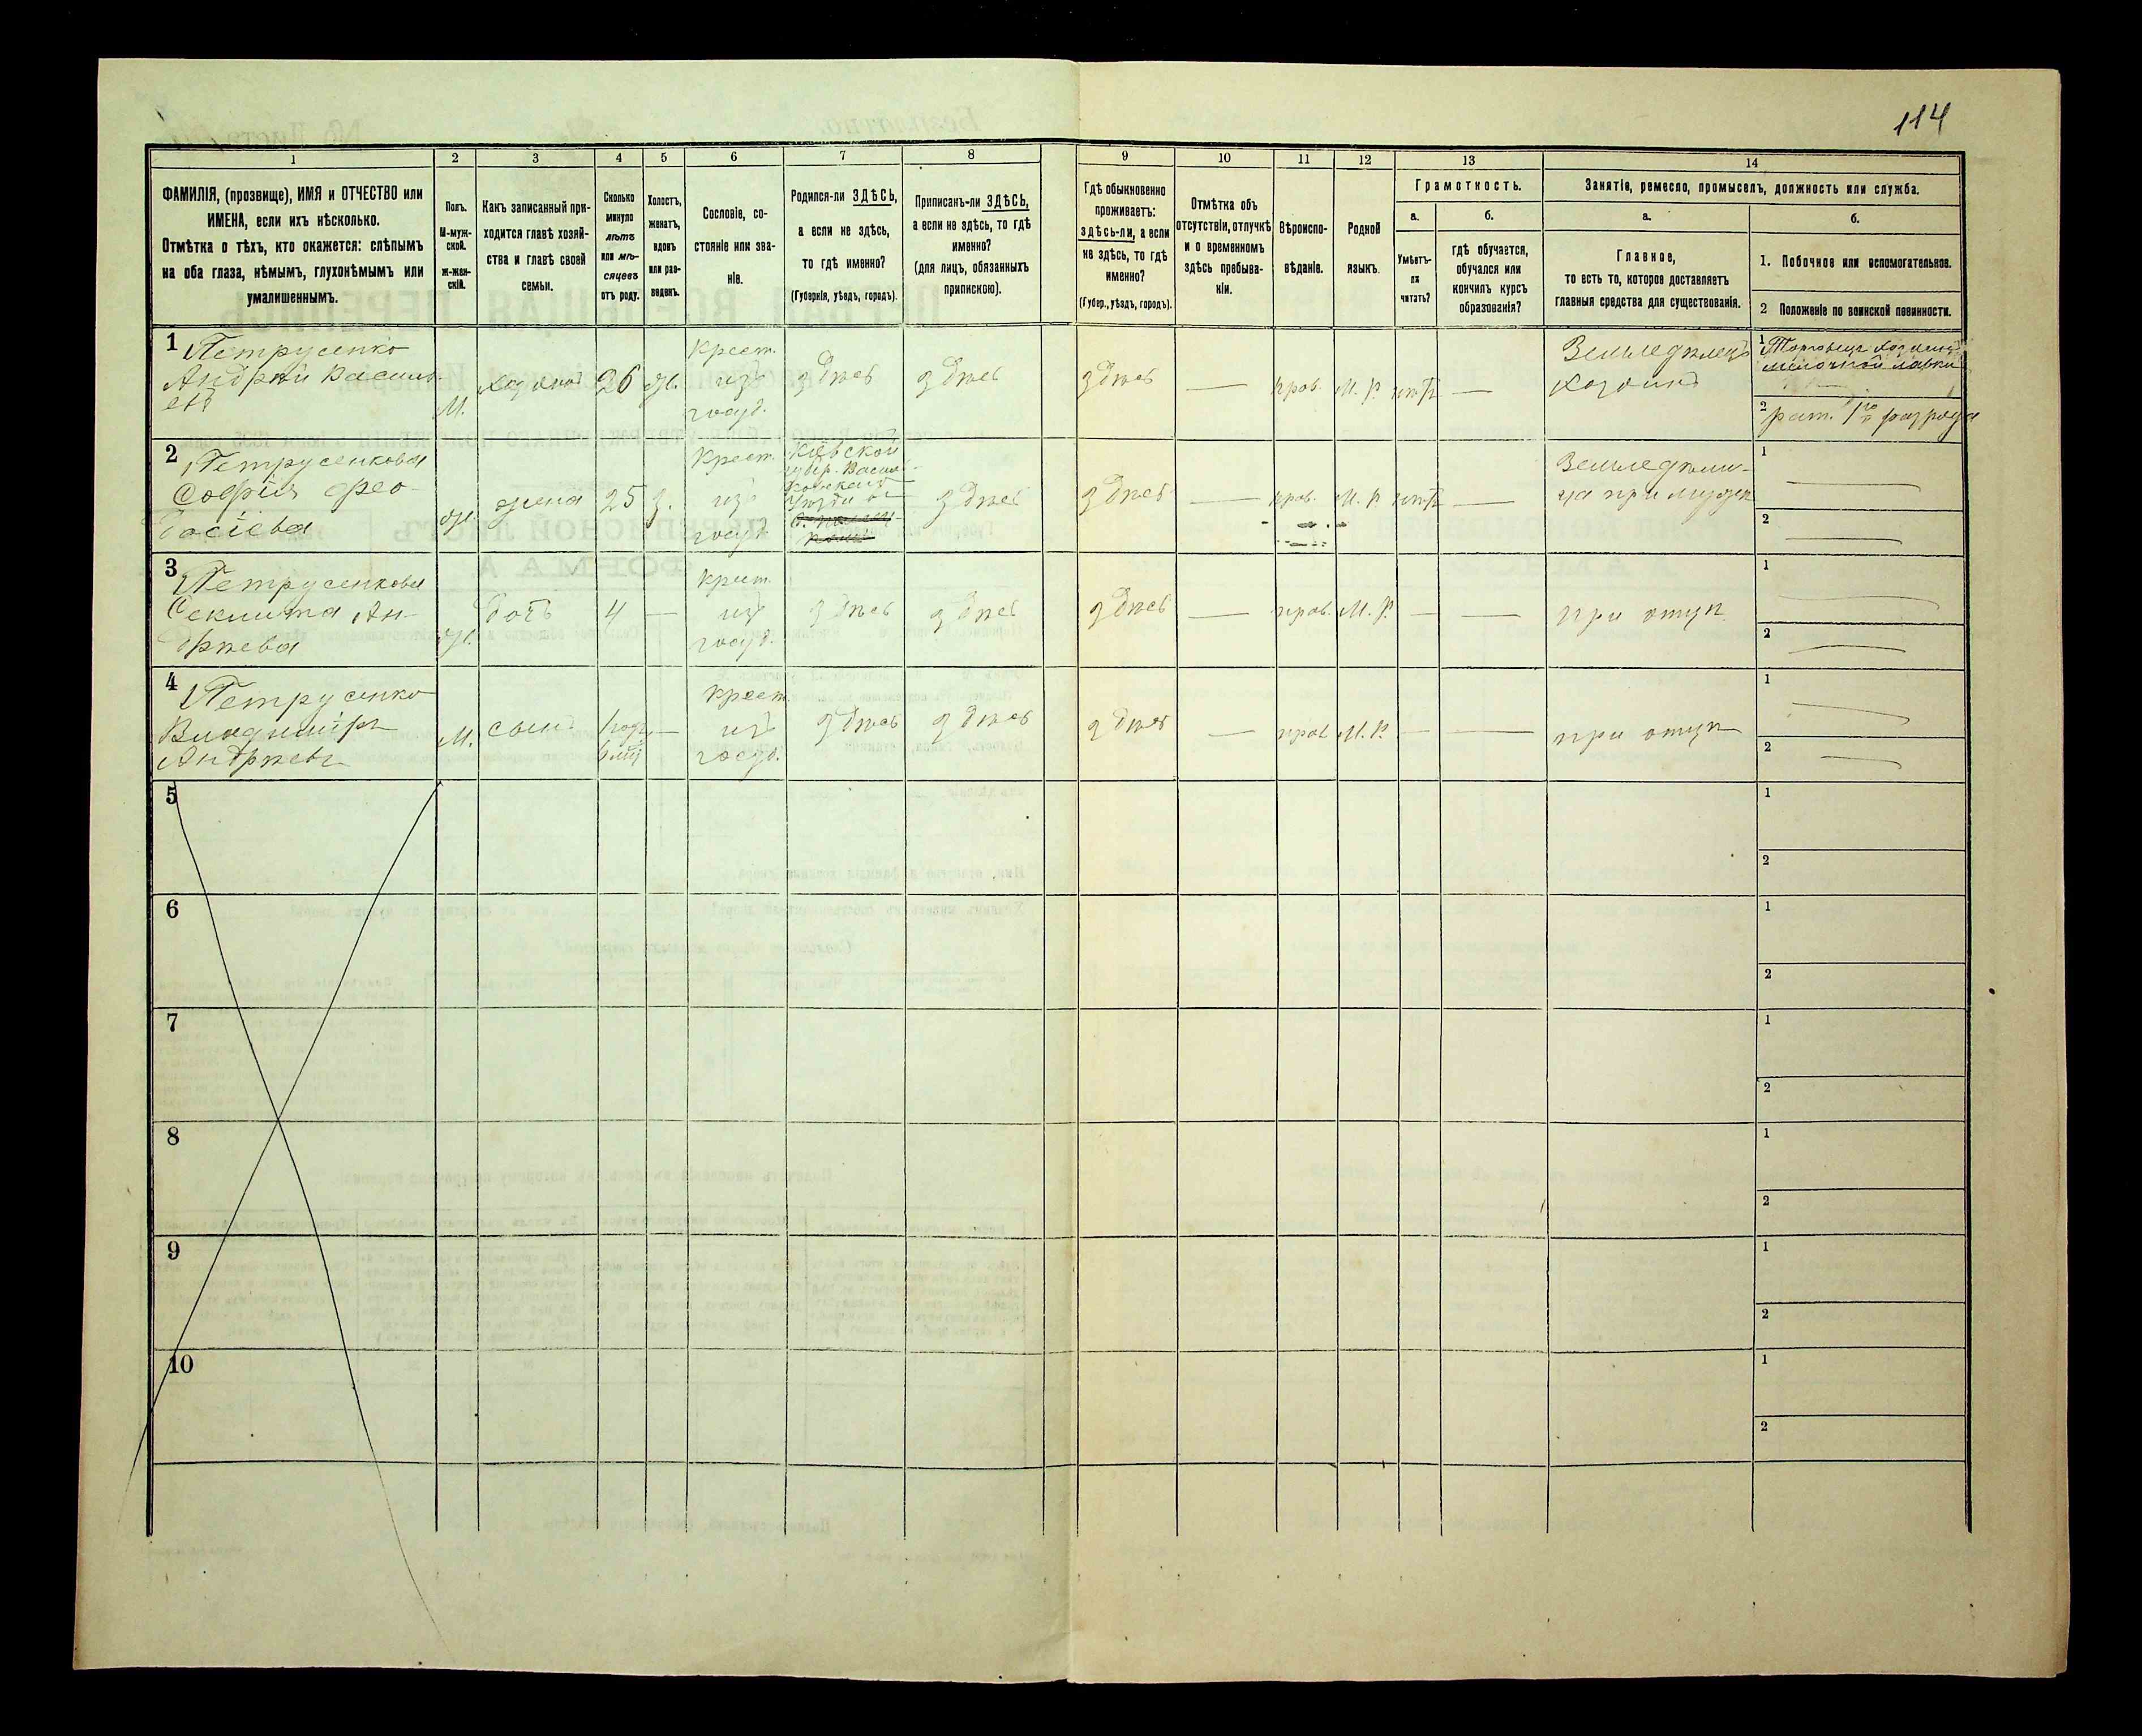 114
1 2 3 4 5 6 7 8 9 10 11 12 13 14
ФАМИЛІЯ, (прозвище), ИМЯ и ОТЧЕСТВО или
ИМЕНА, если ихъ нѣсколько.
Отмѣтка о тѣхъ, кто окажется: слѣпымъ
на оба глаза, нѣмымъ, глухонѣмымъ или
умалишеннымъ.
Полъ.
М-муж-
ской.
Ж-жен-
скій.
Какъ записанный при-
ходится главѣ хозяй-
ства и главѣ своей
семьи.
Сколько
минуло
лѣтъ
или мѣ-
сяцевъ
отъ роду.
Холостъ,
женатъ,
вдовъ
или раз-
веденъ.
Сословіе, со-
стояніе или зва-
ніе.
Родился-ли ЗДѢСЬ,
а если не здѣсь,
то гдѣ именно?
(Губернія, уѣздъ, городъ).
Приписанъ-ли ЗДѢСЬ,
а если не здѣсь, то гдѣ
именно?
(для лицъ, обязанныхъ
припискою).
Гдѣ обыкновенно
проживаетъ:
здѣсь-ли, а если
не здѣсь, то гдѣ
именно?
(Губер., уѣздъ, городъ).
Отмѣтка объ
отсутствіи, отлучкѣ
и о временномъ
здѣсь пребыва-
ніи.
Вѣроиспо-
вѣданіе.
Родной
языкъ.
Грамотность.
а.
Умѣетъ-
ли
читать?
б.
гдѣ обучается,
обучался или
кончилъ курсъ
образованія?
Занятіе, ремесло, промыселъ, должность или служба.
а.
Главное,
то есть то, которое доставляетъ
главныя средства для существованія.
б.
1. Побочное или вспомогательное.
2 Положеніе по воинской повинности.
1 Петрусенко
Андрѣй Василь-
евъ
М.
хозяинъ
26
ж.
Крест.
изъ
госуд.
здѣсь
здѣсь
здѣсь
прав.
М. Р.
нѣтъ
Земледѣлецъ
хозяинъ
1 Торговецъ хозяинъ
мелочной лавки
2 рат. 1го разряда
2 Петрусенкова
Софія Фео-
досіева
ж.
жена
25
з.
Крест.
изъ
госуд.
Кіевской
губер. Васил-
ковскаго
уѣзда
здѣсь
здѣсь
прав.
М. Р.
нѣтъ
Земледѣли-
ца при мужѣ
1
2
3 Петрусенкова
Секлита Ан-
дрѣева
ж.
дочь
4
крест.
изъ
госуд.
здѣсь
здѣсь
здѣсь
прав.
М. Р.
при отцѣ
1
2
4 Петрусенко
Владиміръ
Андрѣевъ
М.
сынъ
1 годъ
6 мѣс
крест.
изъ
госуд.
здѣсь
здѣсь
здѣсь
прав
М. Р.
при отцѣ
1
2
5
1
2
6
1
2
7
1
2
8
1
2
9
1
2
10
1
2